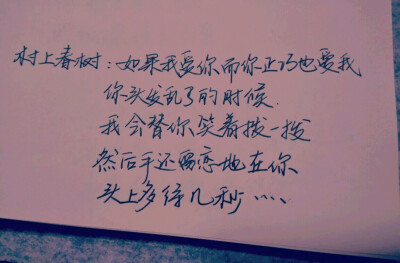 村上春树：如果我爱你而你正巧也爱我
你头发乱了的时候
我会替你笑着拨一拨
然后手还留恋地在你
头上多待几秒……